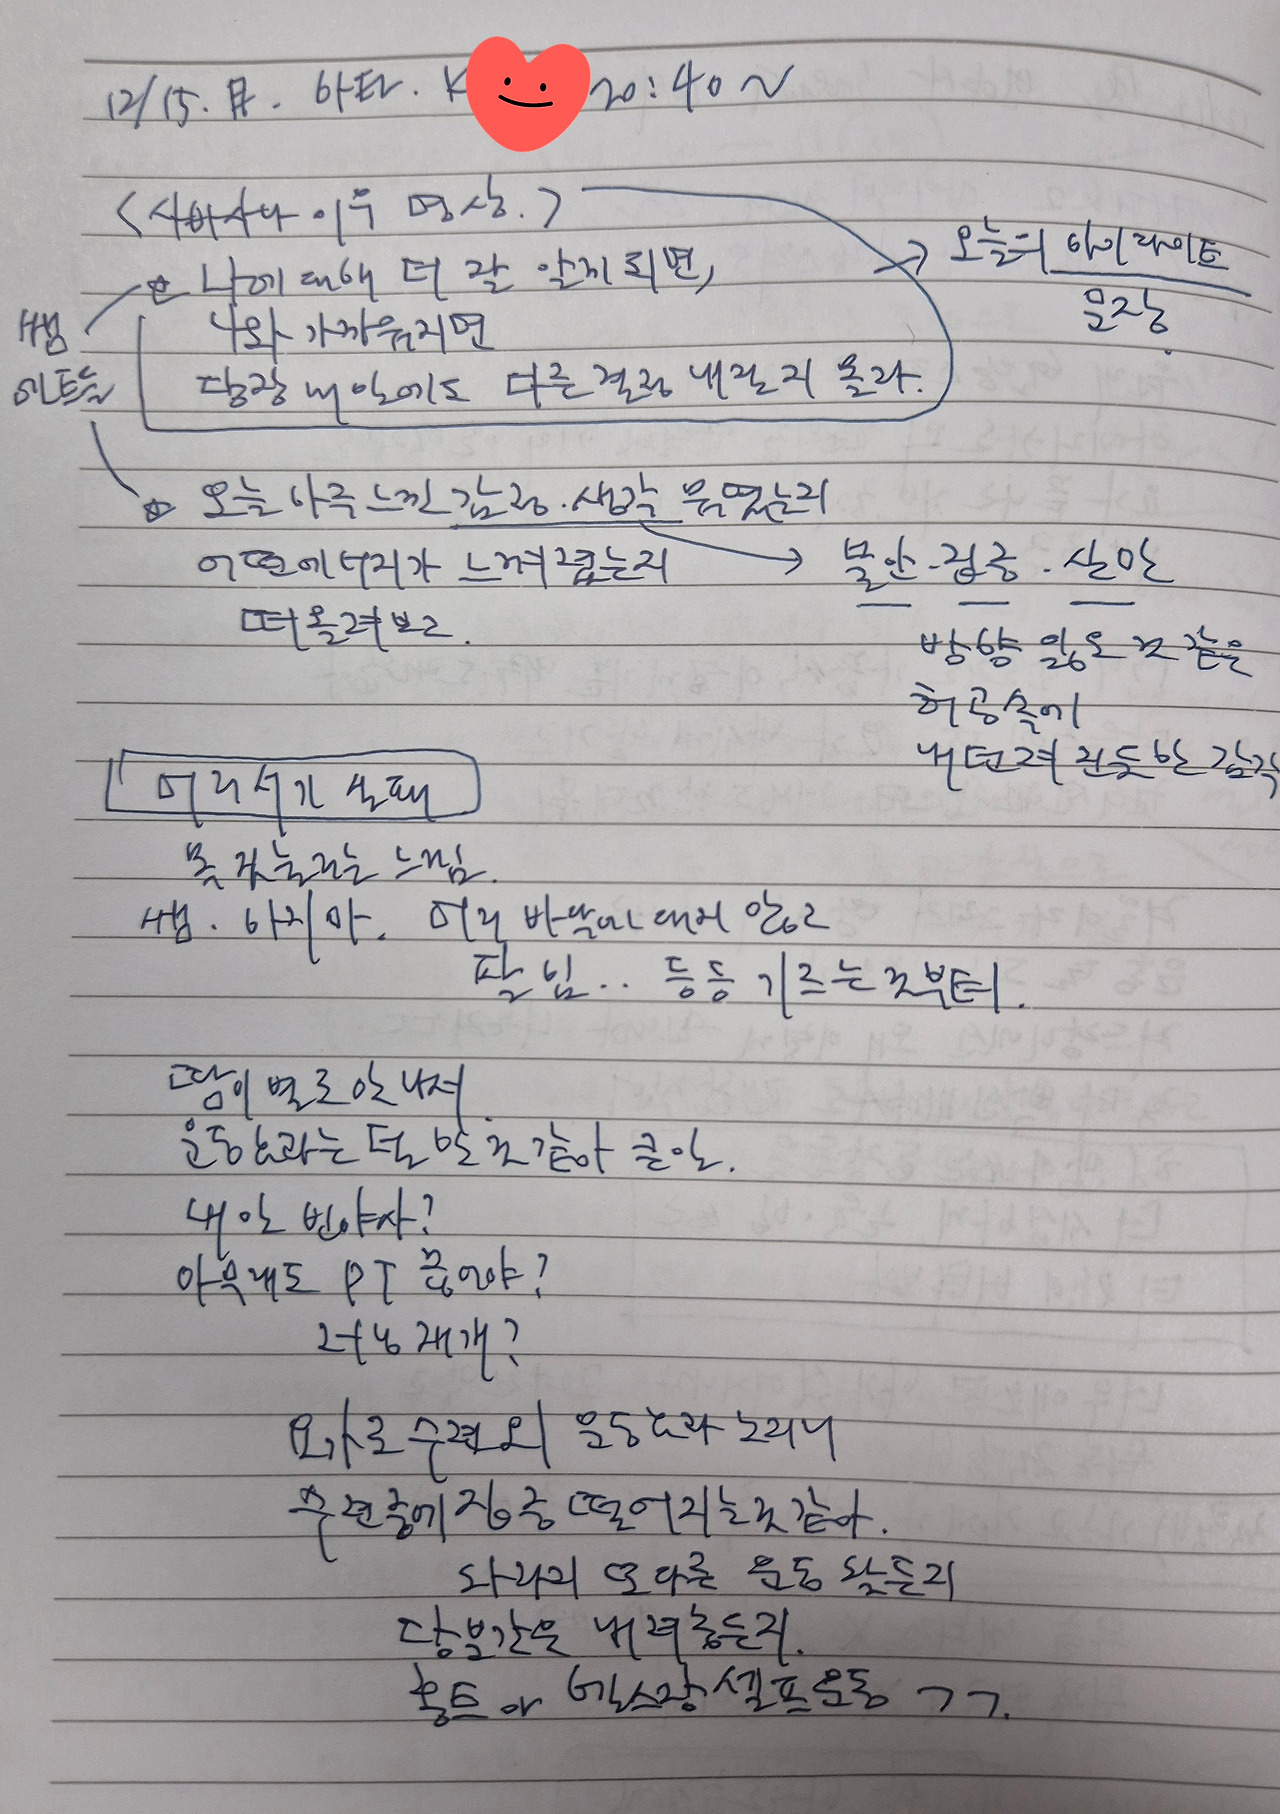 12/15. 月. 하타. K 20:40~
<사바사나 이후 명상.>
☆ 나에 대해 더 잘 알게 되면,
나와 가까워지면
당장 내일에도 다른 결정 내릴지 몰라.
→ 오늘의 하이라이트
문장.
쌤
멘트들
☆ 오늘 하루 느낀 감정.생각 무엇인지
어떤 에너지가 느껴졌는지
떠올려보고.
→ 불안.집중.산만
방향 잃은 것 같은
허공속에
내던져진듯한 감각
머리서기 실패
목 짓눌리는 느낌.
쌤. 하지마. 머리 바닥에 대지 않고
팔 힘.. 등등 기르는 것부터.
땀이 별로 안 나서
운동효과는 덜한 것 같아 큰일.
내 안 빈야사?
아무래도 PT 끊어야?
러닝 재개?
요가로 수련외의 운동효과 노리니
수련중에 집중 떨어지는 것 같아.
차라리 또다른 운동 찾든지
당분간은 내려놓든지.
홈트나 헬스장 셀프운동 ㄱㄱ.